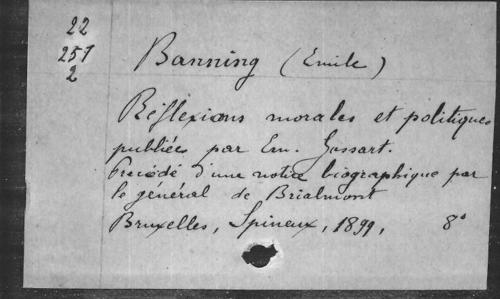 22
257
2
Banning (Emile)
Réflexions morales et politiques
publiées par Ern. Gossart.
Précédé d'une notice biographique par
le général de Brialmont
Bruxelles, Spineux, 1899, 8°